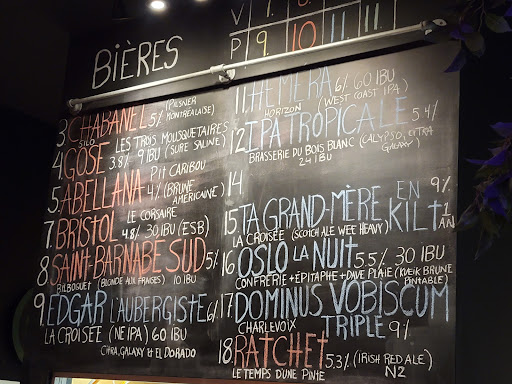 V 7. 8.
P 9. 10. 11.
BIÈRES
3 CHABANEL 5% (PILSNER MONTRÉALAISE)
SILO
4. GOSE LES TROIS MOUSQUETAIRES
3.8% 9 IBU (SURE SALINE)
5. ABELLANA PIT CARIBOU
4% (BRUNE AMERICAINE)
7. BRISTOL LE CORSAIRE
4.8% 30 IBU (ESB)
8. SAINT-BARNABE SUD 5%
BILBOQUET (BLONDE AUX FRAISES) 10 IBU
9. EDGAR L'AUBERGISTE 6%
LA CROISÉE (NEIPA) 60 IBU
CITRA, GALAXY & EL DORADO
11. HEMERA 6% 60 IBU
HORIZON (WEST COAST IPA)
12 IPA TROPICALE 5.4%
BRASSERIE DU BOIS BLANC (CALYPSO, CITRA GALAXY)
24 IBU
14
15. TA GRAND-MÈRE EN KILT 9%
LA CROISÉE (SCOTCH ALE WEE HEAVY) 1 AN
16 OSLO LA NUIT 5.5% 30 IBU
CONFRÉRIE + ÉPITAPHE + DAVE PLAIE (KVEIK BRUNE PINTABLE)
17. DOMINUS VOBISCUM
CHARLEVOIX TRIPLE 9%
18. RATCHET 5.3% (IRISH RED ALE)
LE TEMPS D'UNE PINTE N2